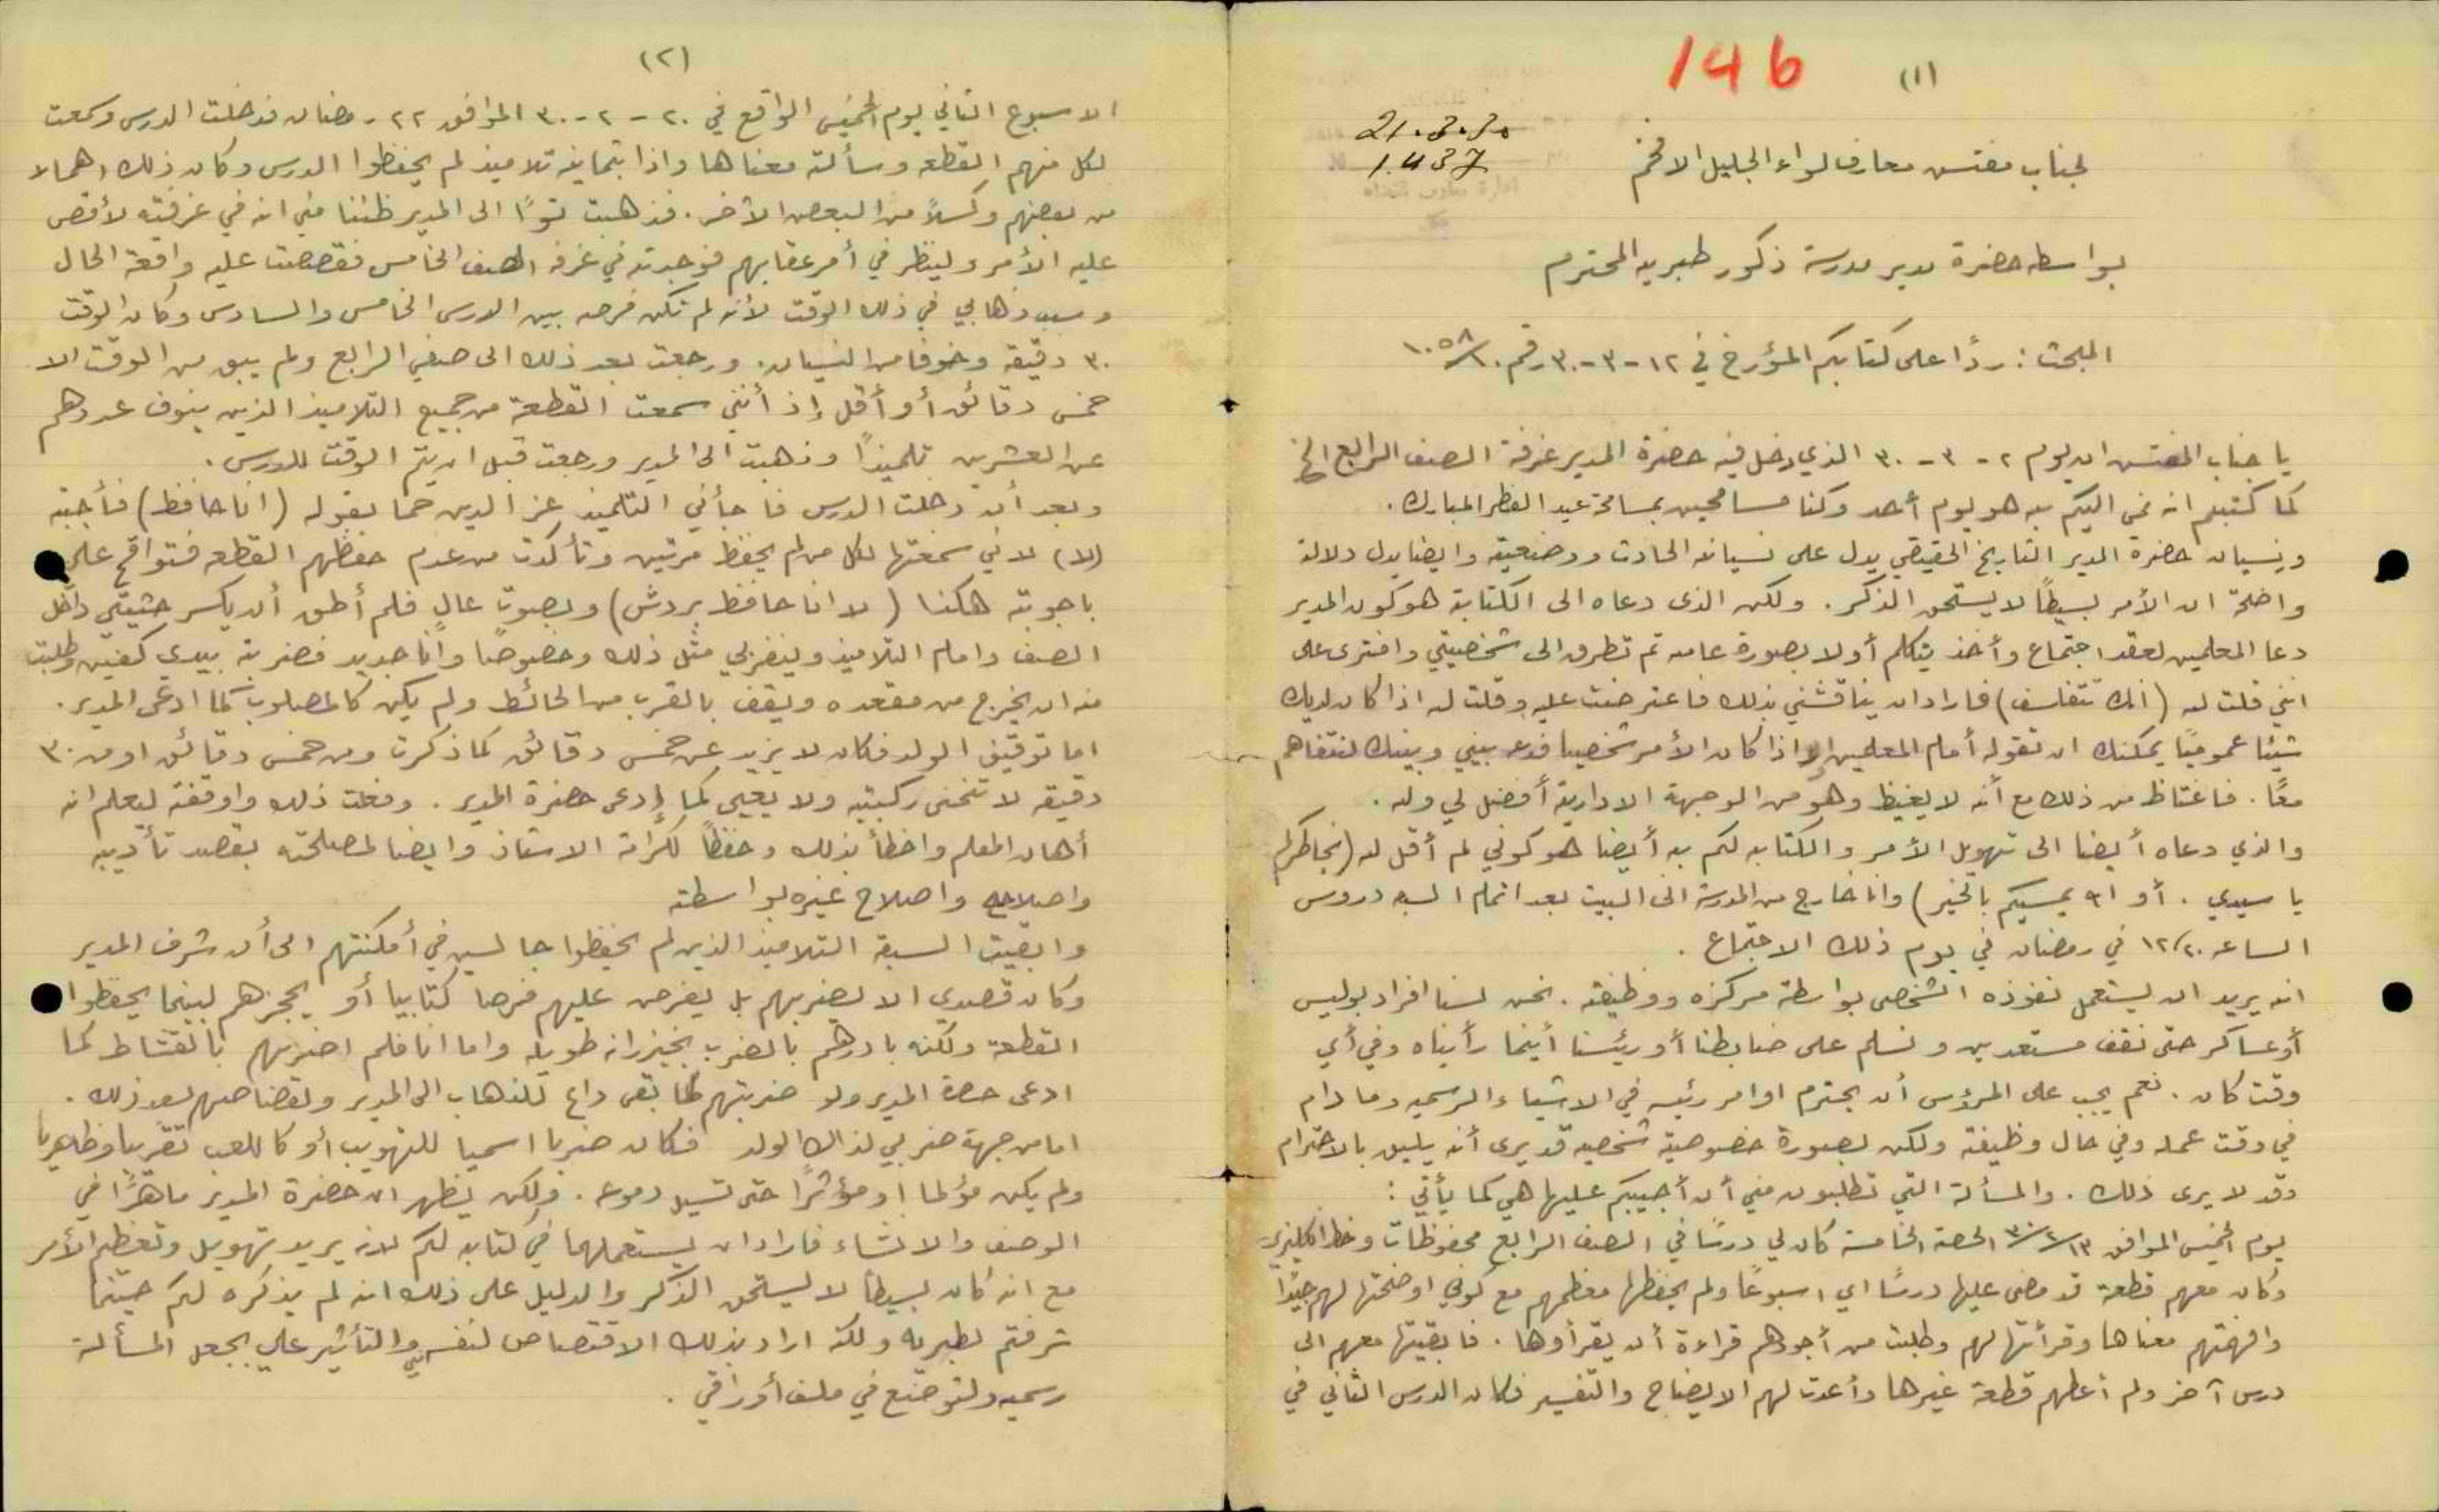 146
(١)
21.3.30
1437
لجناب مفتش معارف لواء الجليل الافخم
بواسطة حضرة مدير مدرسة ذكور طبريه المحترم
المبحث: ردًا على كتابكم المؤرخ في ١٢-٣-٣٠ رقم ١٠٥٨/١٠
يا جناب المفتش ان يوم ٢-٣-٣٠ الذي دخل فيه حضرة المدير غرفة الصف الرابع الخ
كما كتبتم انه نمى اليكم به هو يوم أحد وكنا مسامحين بمسامحة عيد الفطر المبارك.
ونسيان حضرة المدير التاريخ الحقيقي يدل على نسيانه الحادث ووضعيته وايضا يدل دلالة
واضحة ان الأمر بسيطاً لا يستحق الذكر. ولكن الذى دعاه الى الكتابة هو كون المدير
دعا المعلمين لعقد اجتماع وأخذ يتكلم أولا بصورة عامه ثم تطرق الى شخصيتي وافترى على
انني قلت له (انك تتفلسف) فاراد ان يناقشني بذلك فاعترضت عليه وقلت له اذا كان لديك
شيئا عموميًا يمكنك ان تقوله أمام المعلمين واذا كان الأمر شخصيا فدعه بيني وبينك لنتفاهم
معًا. فاغتاظ من ذلك مع أنه لا يغيظ وهو من الوجهة الادارية أفضل لي وله.
والذي دعاه أيضا الى تهويل الأمر والكتابه لكم به أيضا هو كوني لم أقل له (بخاطركم
يا سيدي. أو الله يمسيكم بالخير) وانا خارج من المدرسة الى البيت بعد اتمام السبعه دروس
الساعه ١٢/٢٠ في رمضان في يوم ذلك الاجتماع.
انه يريد ان يستعمل نفوذه الشخصى بواسطة مركزه ووظيفته. نحن لسنا افراد بوليس
أو عساكر حتى نقف مستعدين ونسلم على ضابطنا أو رئيسنا أينما رأيناه وفي أي
وقت كان. نعم يجب على المرؤوس أن يحترم اوامر رئيسه في الاشياء الرسميه وما دام
في وقت عمله وفي حال وظيفته ولكن بصورة خصوصية شخصيه قد يرى أنه يليق بالاحترام
وقد لا يرى ذلك. والمسألة التي تطلبون مني أن أجيبكم عليها هي كما يأتي:
يوم الخميس الموافق ١٣/٢/٣٠ الحصة الخامسة كان لي درسًا في الصف الرابع محفوظات وخط انكليزي
وكان معهم قطعة قد مضى عليها درسًا اي اسبوعًا ولم يحفظها معظمهم مع كوني اوضحتها لهم جيدًا
وافهمتهم معناها وقرأتها لهم وطلبت من أجودهم قراءة أن يقرأوها. فابقيتها معهم الى
درس آخر ولم أعطهم قطعة غيرها وأعدت لهم الايضاح والتفسير فكان الدرس الثاني في
(٢)
الاسبوع الثاني يوم الخميس الواقع في ٢٠-٢-٣٠ الموافق ٢٢ رمضان فدخلت الدرس وسمعت
لكل منهم القطعه وسألته معناها واذا بثمانية تلاميذ لم يحفظوا الدرس وكان ذلك اهمالا
من بعضهم وكسلاً من البعض الآخر. فذهبت توًا الى المدير ظننا مني انه في غرفته لأقص
عليه الأمر ولينظر في أمر عقابهم فوجدته في غرفة الصف الخامس فقصصت عليه واقعة الحال
وسبب ذهابي في ذلك الوقت لأنه لم تكن فرصه بين الدرس الخامس والسادس وكان الوقت
٣٠ دقيقه وخوفا من النسيان. ورجعت بعد ذلك الى صفي الرابع ولم يبق من الوقت الا
خمس دقائق أو أقل إذ أنني سمعت القطعة من جميع التلاميذ الذين ينوف عددهم
عن العشرين تلميذًا وذهبت الى المدير ورجعت قبل ان يتم الوقت للدرس.
وبعد أن دخلت الدرس فاجأني التلميذ عز الدين حما بقوله (انا حافظ) فأجبته
(لا) لاني سمعتها لكل من لم يحفظ مرتين وتأكدت من عدم حفظهم القطعه فتواقح علي
باجوبته هكذا (لا انا حافظ بردش) وبصوت عال فلم أطق أن يكسر حيثيتي داخل
الصف وامام التلاميذ وينفر بي مثل ذلك وخصوصًا وأنا جديد فضربته بيدي كفين وطلبت
منه ان يخرج من مقعده ويقف بالقرب من الحائط ولم يكن كالمصلوب كما ادعى المدير.
اما توقيف الولد فكان لا يزيد عن خمس دقائق كما ذكرت ومن خمس دقائق او من ٣٠
دقيقه لا تنحنى ركبتيه ولا يعيى كما إدعى حضرة المدير. وفعلت ذلك واوقفته ليعلم انه
أهان المعلم واخطأ بذلك وحفظاً لكرامة الاستاذ وايضا لمصلحته بقصد تأديبه
واصلاحه واصلاح غيره بواسطته
وابقيت السبعة التلاميذ الذين لم يحفظوا جالسين في أمكنتهم الى أن شرف المدير
وكان قصدي الا يضربهم بل يفرض عليهم فرضا كتابيا أو يحجزهم لبينما يحفظوا
القطعة ولكنه بادرهم بالضرب بخيزرانه طويله واما انا فلم اضربهم بالقشاط كما
ادعى حضرة المدير ولو ضربتهم لما بقى داع للذهاب الى المدير ولقصاصهم بعد ذلك.
اما من جهة ضربي لذاك الولد فكان ضربا اسميا للتهويب أو كاللعب تقريبا وظاهريا
ولم يكن مؤلما او مؤثرًا حتى تسيل دموعه. ولكن يظهر ان حضرة المدير ماهرًا في
الوصف والانشاء فاراد ان يستعملهما في كتابه لكم لانه يريد تهويل وتعظيم الأمر
مع انه كان بسيطاً لا يستحق الذكر والدليل على ذلك انه لم يذكره لكم حينما
شرفتم لطبريه ولكنه اراد بذلك الاقتصاص لنفسه والتأثير علي بجعل المسألة
رسميه ولتوضع في ملف أوراقي.